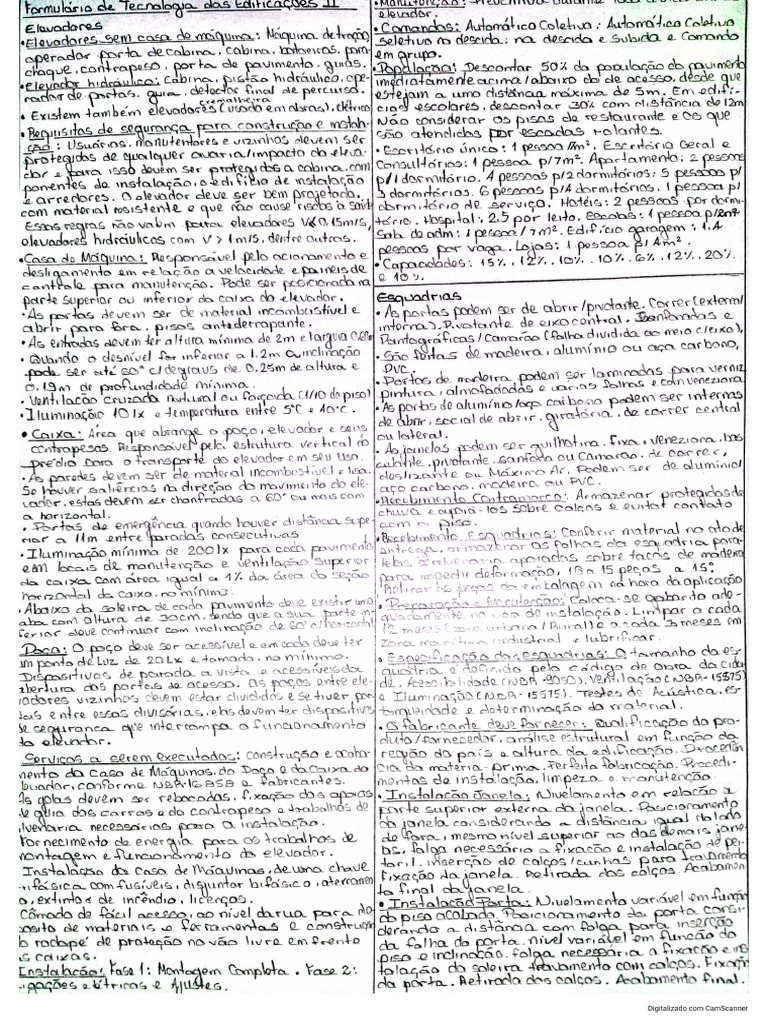 Formulário de Tecnologia das Edificações II
Elevadores
• Elevadores sem casa de máquina: Máquina de tração,
operador porta de cabina, cabina, botoeiras, para-
choque, contrapeso, porta de pavimento, guias.
• Elevador hidráulico: Cabina, pistão hidráulico, ope-
rador de portas, guia, detector final de percurso.
• Existem também elevadores cremalheira (usado em obras), elétrico
• Requisitos de segurança para construção e instala-
ção: Usuários, manutentores e vizinhos devem ser
protegidos de qualquer avaria/impacto do eleva-
dor e para isso devem ser protegidos a cabina, com-
ponentes de instalação, o edifício de instalação
e arredores. O elevador deve ser bem projetado,
com material resistente e que não cause riscos à saúde
Essas regras não valem para elevadores V≤0.15m/s,
elevadores hidráulicos com V > 1m/s, dentre outros.
• Casa de Máquina: Responsável pelo acionamento e
desligamento em relação a velocidade e paineis de
controle para manutenção. Pode ser posicionada na
parte superior ou inferior da caixa do elevador.
• As portas devem ser de material incombustível e
abrir para fora, pisos antederrapante.
• As entradas devem ter altura mínima de 2m e largura 0.70m
• Quando o desnível for inferior a 1.2m a inclinação
pode ser até 60° c/ degraus de 0.25m de altura e
0.19m de profundidade mínima.
• Ventilação cruzada natural ou forçada (1/10 do piso)
• Iluminação 10lx e temperatura entre 5°C e 40°C.
• Caixa: Área que abrange o poço, elevador e seus
contrapesos. Responsável pela estrutura vertical do
prédio para o transporte do elevador em seu uso.
• As paredes devem ser de material incombustível e lisa.
Se houver saliências na direção do movimento do ele-
vador, estas devem ser chanfradas a 60° ou mais com
a horizontal.
• Portas de emergência quando houver distância supe-
rior a 11m entre paradas consecutivas
• Iluminação mínima de 200lx para cada pavimento
em locais de manutenção e ventilação superior
da caixa com área igual a 1% da área da seção
horizontal da caixa, no mínimo.
• Abaixo da soleira de cada pavimento deve existir uma
aba com altura de 30cm, sendo que a sua parte in-
ferior deve continuar com inclinação de 60° c/ horizontal
Poço: O poço deve ser acessível e em cada deve ter
um ponto de Luz de 20Lx e tomada, no mínimo.
Dispositivos de parada a vista e acessíveis da
abertura das portas de acesso. Os poços entre ele-
vadores vizinhos devem estar divididos e se tiver por-
tas entre essas divisórias, elas devem ter dispositivos
de segurança que interrompa o funcionamento
do elevador.
Serviços a serem executados: construção e acaba-
mento da Casa de Máquinas, do Poço e da Caixa do
, conforme NBR e fabricantes.
As golas devem ser rebocadas, fixação dos apoios
de guia dos carros e do contrapeso e trabalhos de
alvenaria necessários para a instalação.
Fornecimento de energia para os trabalhos de
montagem e funcionamento do elevador.
Instalação da Casa de Máquinas, de uma chave
trifásica com fusíveis, disjuntor bifásico, aterramen-
to, extintor de incêndio, licenças.
Cômodo de fácil acesso, ao nível da rua para de-
pósito de materiais e ferramentas e construção
do rodapé de proteção no vão livre em frente
às caixas.
Instalação: Fase 1: Montagem Completa • Fase 2:
Ligações elétricas e Ajustes.
elevador.
• Comandos: Automático Coletivo; Automático Coletivo
seletivo na descida; na descida e subida e Comando
em grupo.
• População: Descontar 50% da população do pavimento
imediatamente acima/abaixo do de acesso, desde que
estejam a uma distância máxima de 5m. Em edifí-
cios escolares, descontar 30% com distância de 12m
Não considerar os pisos de restaurante e os que
são atendidos por escadas rolantes.
• Escritório único: 1 pessoa/7m². Escritório Geral e
Consultórias: 1 pessoa p/7m². Apartamento: 2 pessoas
p/1 dormitório. 4 pessoas p/2 dormitórios; 5 pessoas p/
3 dormitórios. 6 pessoas p/4 dormitórios. 1 pessoa p/
dormitório de serviço. Hotéis: 2 pessoas por dormi-
tório. Hospital: 2.5 por leito. Escolas: 1 pessoa p/2m²
Sala de adm: 1 pessoa/7m². Edifício garagem: 1.4
pessoas por vaga. Lojas: 1 pessoa p/4m².
• Capacidades: 15%, 12%, 10%, 10%, 6%, 12%, 20%
e 10%.
Esquadrias
• As portas podem ser de abrir/pivotante. Correr (external
interna). Pivotante de eixo central. Sanfonadas e
Pantográficas/Camarão (folha dividida ao meio c/eixo),
• São feitas de madeira, alumínio ou aço carbono,
PVC.
• Portas de madeira podem ser laminadas para verniz
pintura, almofadadas e várias folhas e com veneziana
• As portas de alumínio/aço carbono podem ser internas
de abrir, social de abrir, giratória, de correr central
ou lateral.
• As janelas podem ser guilhotina, fixa, veneziana, bas-
culante, pivotante, sanfona ou Camarão, de correr,
deslizante ou Máximo Ar. Podem ser de alumínio,
aço carbono, madeira ou PVC.
• Recebimento Contramarco: Armazenar protegidos da
chuva e apoiá-los sobre calços e evitar contato
com o piso.
• Recebimento Esquadrias: Conferir material no ato de
entrega, armazenar as folhas da esquadria para-
lelas à alvenaria apoiados sobre tacos de madeira
para impedir deformação, 13 a 15 peças a 15°.
Retirar as peças da embalagem na hora da aplicação
• Preparação e Manutenção: Coloca-se gabarito ade-
quadamente no vão de instalação. Limpar a cada
12 meses (zona urbana/Rural) e a cada 3 meses em
zona marítima/industrial e lubrificar.
• Especificação das Esquadrias: O tamanho da es-
quadria é definido pelo código de obra da cida-
de. Acessibilidade (NBR-9050), Ventilação (NBR-15575)
e Iluminação (NBR-15575). Testes de Acústica, es-
tanqueidade e determinação do material.
• O fabricante deve fornecer: Qualificação do pro-
duto/fornecedor, análise estrutural em função da
região do país e altura da edificação. Procedên-
cia da matéria-prima. Perfeita fabricação. Procedi-
mentos de instalação, limpeza e manutenção
• Instalação Janela: Nivelamento em relação à
parte superior externa da janela. Posicionamento
da janela considerando a distância igual do lado
de fora, mesmo nível superior ao das demais jane-
las, folga necessário a fixação e instalação de pei-
toril, inserção de calços/cunhas para travamento
Fixação da janela. Retirada dos calços. Acabamen-
to final da janela.
• Instalação Porta: Nivelamento variável em função
do piso acabado. Posicionamento da porta consi-
derando a distância com folga para inserção
da folha da porta, nível variável em função do
piso e inclinação, folga necessária a fixação e ins-
talação da soleira travamento com calços. Fixação
da porta. Retirada dos calços. Acabamento final.
Digitalizado com CamScanner